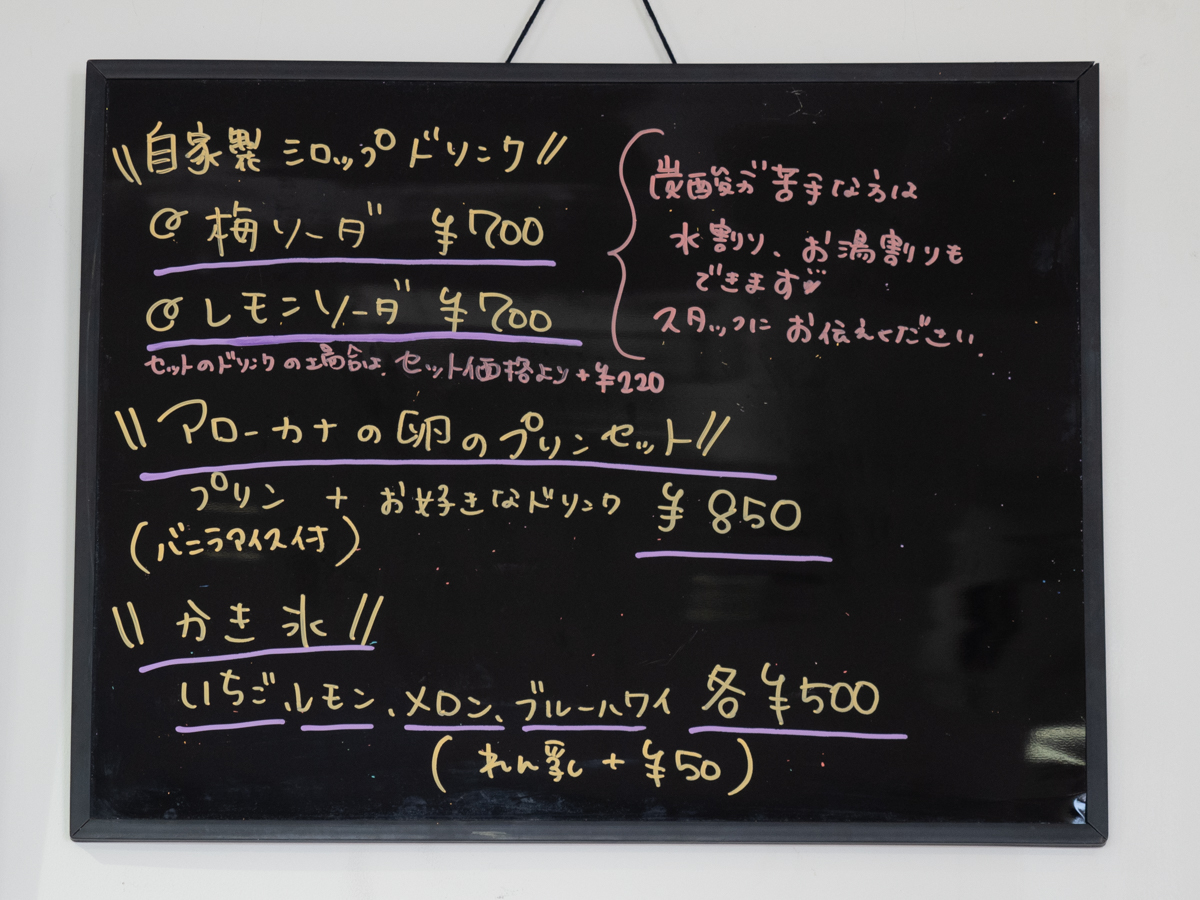 \\自家製 シロップドリンク//
@ 梅ソーダ ¥700
@ レモンソーダ ¥700
炭酸が苦手な方は
水割り、お湯割りも
できます♥
スタッフに お伝えください.
セットのドリンクの場合は、セット価格より+¥220
\\アローカナの卵のプリンセット//
プリン + お好きなドリンク ¥850
(バニラアイス付)
\\かき氷//
いちご、レモン、メロン、ブルーハワイ 各¥500
(れん乳+¥50)